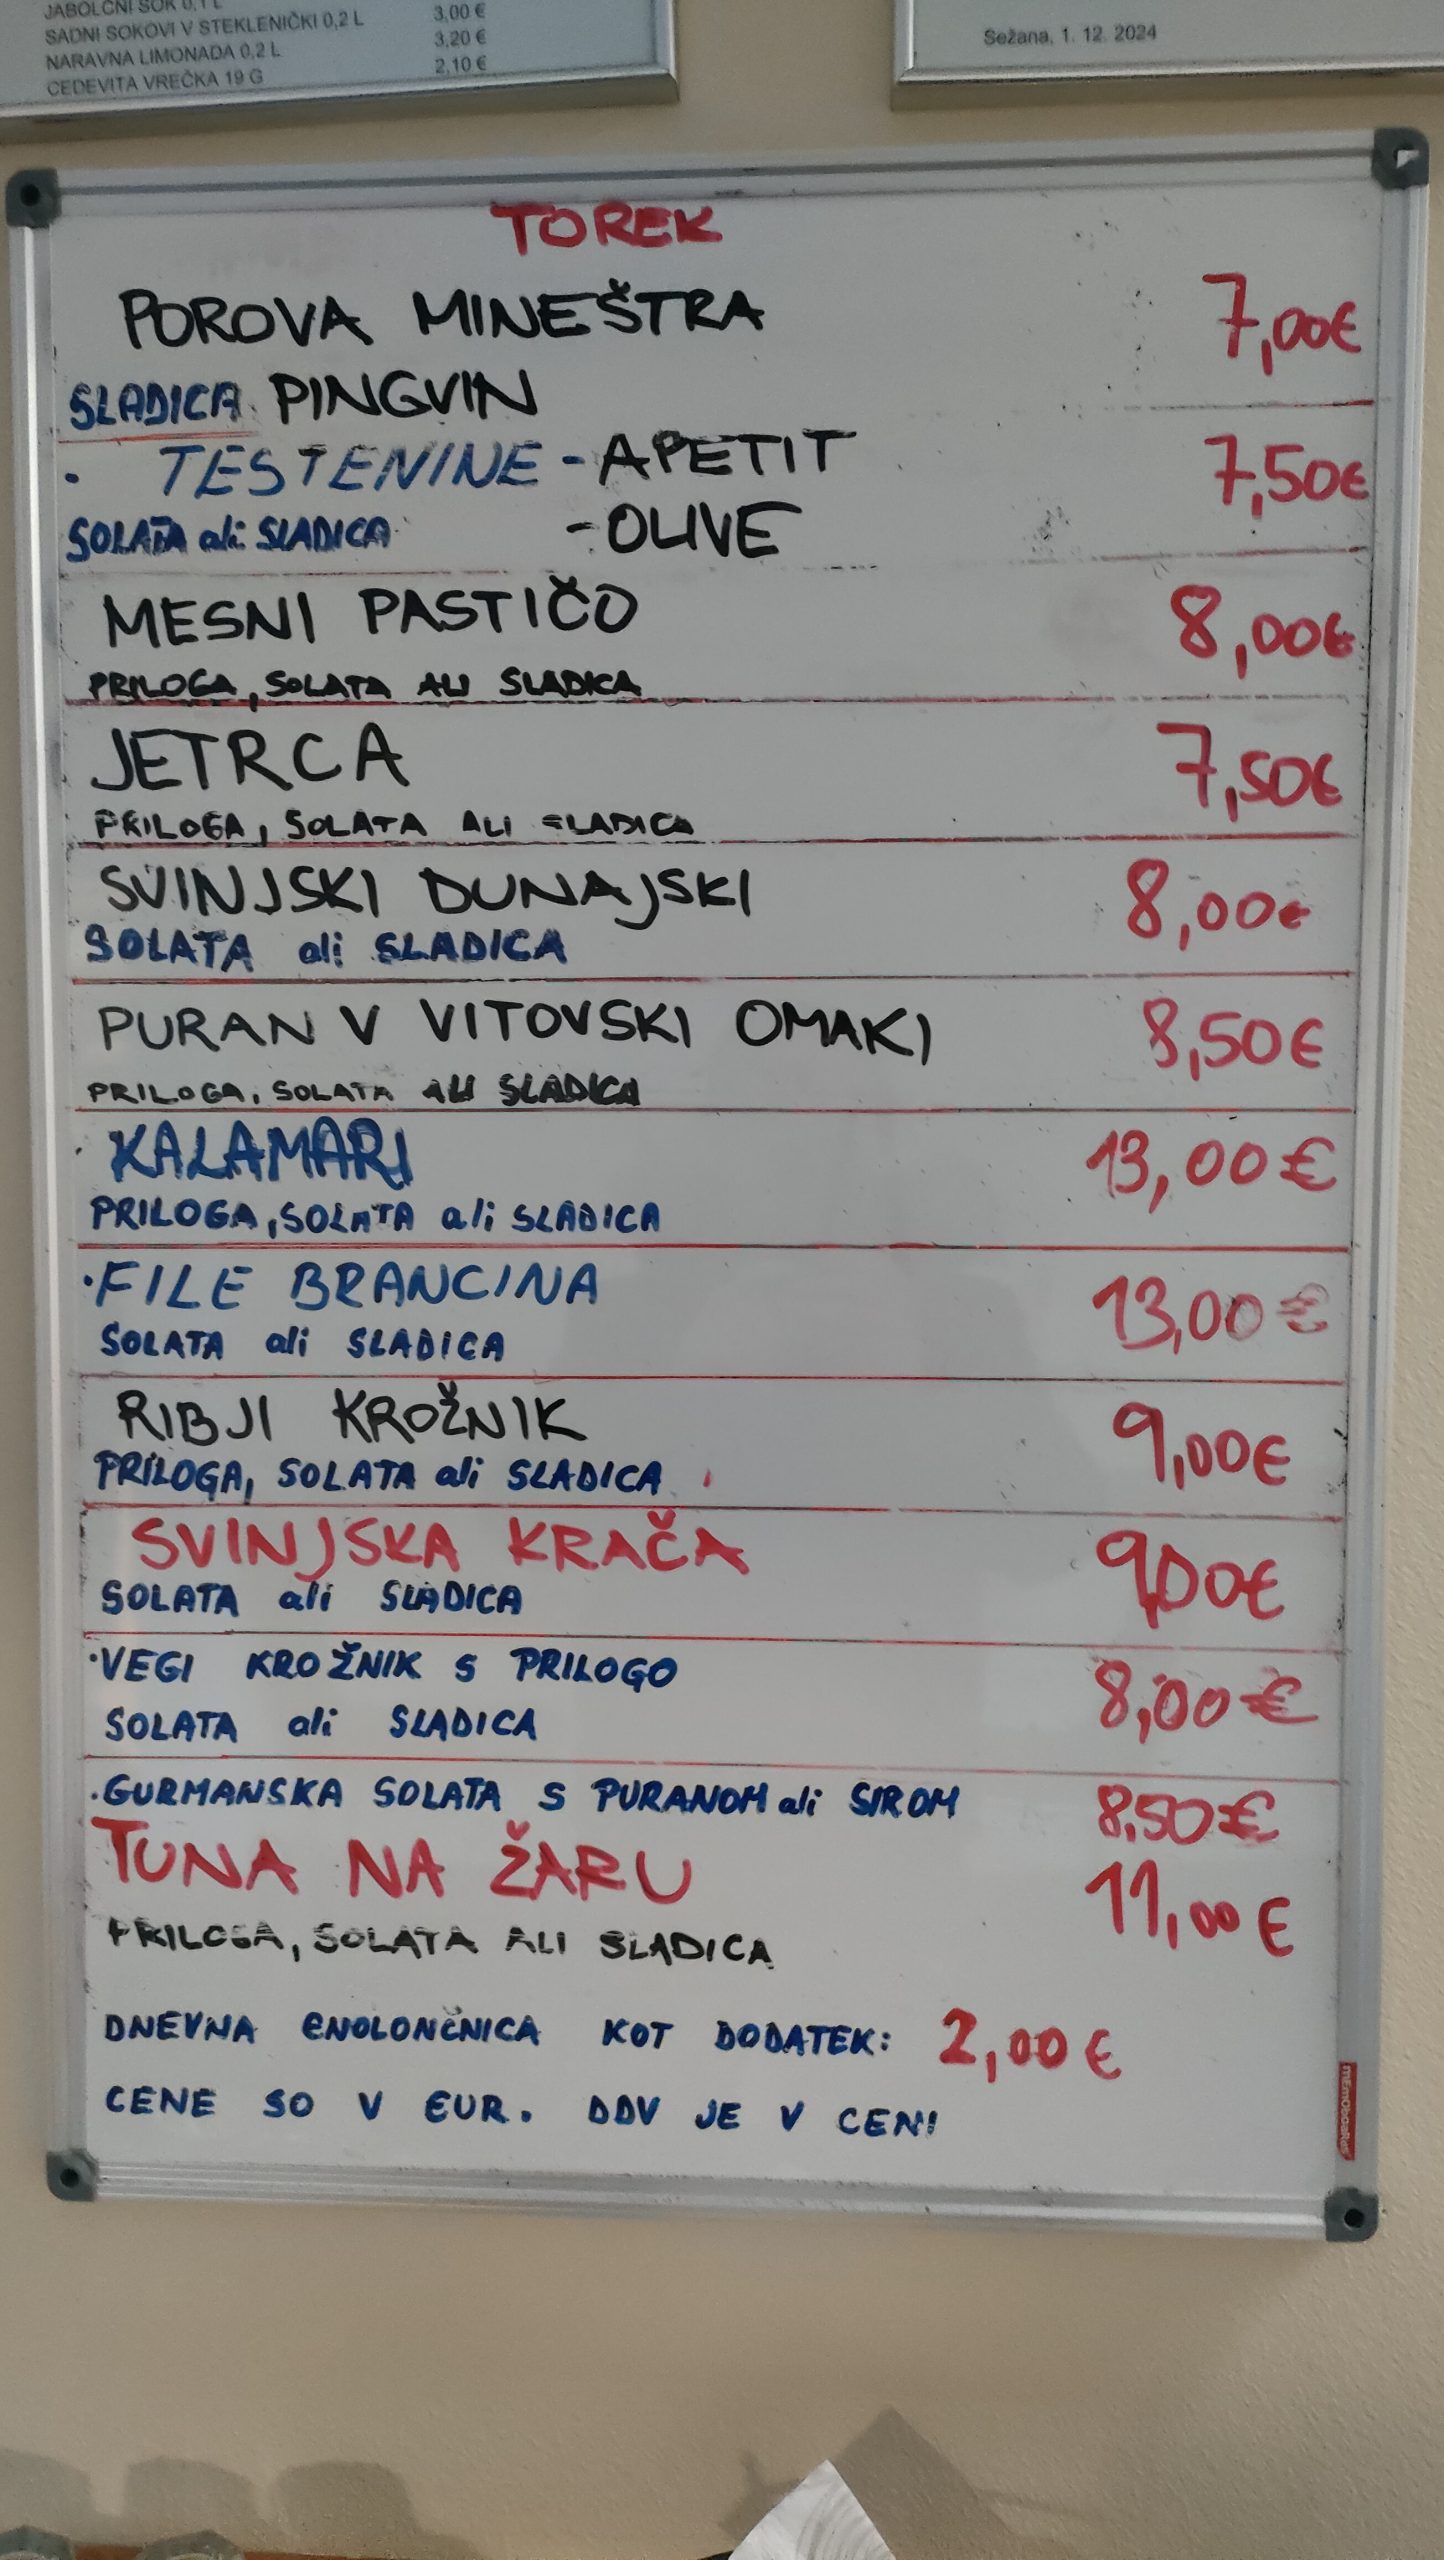 JABOLČNI SOK 0,1 L
SADNI SOKOVI V STEKLENIČKI 0,2 L 3,00 €
NARAVNA LIMONADA 0,2 L 3,20 €
CEDEVITA VREČKA 19 G 2,10 €
Sežana, 1. 12. 2024
TOREK
POROVA MINEŠTRA 7,00€
SLADICA PINGVIN
• TESTENINE - APETIT 7,50€
SOLATA ali SLADICA - OLIVE
MESNI PASTIČO 8,00€
PRILOGA, SOLATA ALI SLADICA
JETRCA 7,50€
PRILOGA, SOLATA ALI SLADICA
SVINJSKI DUNAJSKI 8,00€
SOLATA ali SLADICA
PURAN V VITOVSKI OMAKI 8,50€
PRILOGA, SOLATA ALI SLADICA
• KALAMARI 13,00€
PRILOGA, SOLATA ali SLADICA
• FILE BRANCINA 13,00€
SOLATA ali SLADICA
RIBJI KROŽNIK 9,00€
PRILOGA, SOLATA ali SLADICA
SVINJSKA KRAČA 9,00€
SOLATA ali SLADICA
• VEGI KROŽNIK S PRILOGO 8,00€
SOLATA ali SLADICA
• GURMANSKA SOLATA S PURANOM ali SIROM 8,50€
TUNA NA ŽARU 11,00€
PRILOGA, SOLATA ALI SLADICA
DNEVNA ENOLONČNICA KOT DODATEK: 2,00€
CENE SO V EUR. DDV JE V CENI